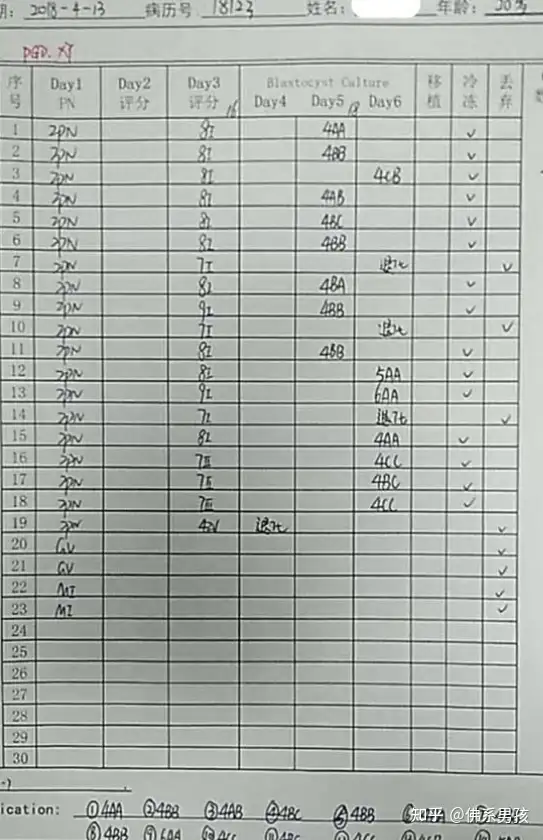 期: 2018-4-13 病历号 18123 姓名: 年龄:
PGD.
序号 Day1 PN Day2 评分 Day3 评分 16 Blastocyst Culture Day4 Day5 Day6 移植 冷冻 丢弃
1 2PN 8I 4AA ✓
2 2PN 8I 4BB ✓
3 2PN 8I 4CB ✓
4 2PN 8I 4AB ✓
5 2PN 8I 4BC ✓
6 2PN 8I 4BB ✓
7 2PN 7I 退化 ✓
8 2PN 8I 4BA ✓
9 2PN 9I 4BB ✓
10 2PN 7I 退化 ✓
11 2PN 8I 4BB ✓
12 2PN 8I 5AA ✓
13 2PN 9I 6AA ✓
14 2PN 7I 退化 ✓
15 2PN 8I 4AA ✓
16 2PN 7II 4CC ✓
17 2PN 7II 4BC ✓
18 2PN 7II 4CC ✓
19 2PN 4IV 退化 ✓
20 GV ✓
21 GV ✓
22 MI ✓
23 MI ✓
24
25
26
27
28
29
30
ication: ①4AA ②4BB ③4AB ④4BC ⑤4BB
⑧4BB ⑨6AA ⑩4CC
知乎 @佛系男孩